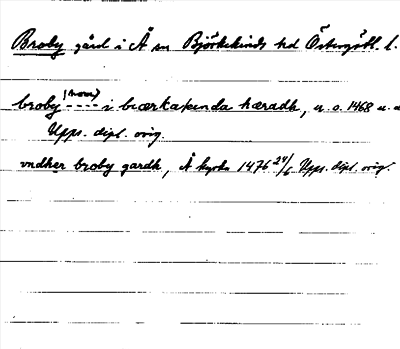 Broby gård i Å sn Björkekinds hd Östergötl. l.
(hom)
broby ---- i biærkakinda hæradh, u. o. 1468 u. d.
Upps. dipl. orig.
vndher broby gardh, Å kyrko 1476 24/6 Upps. dipl. orig.